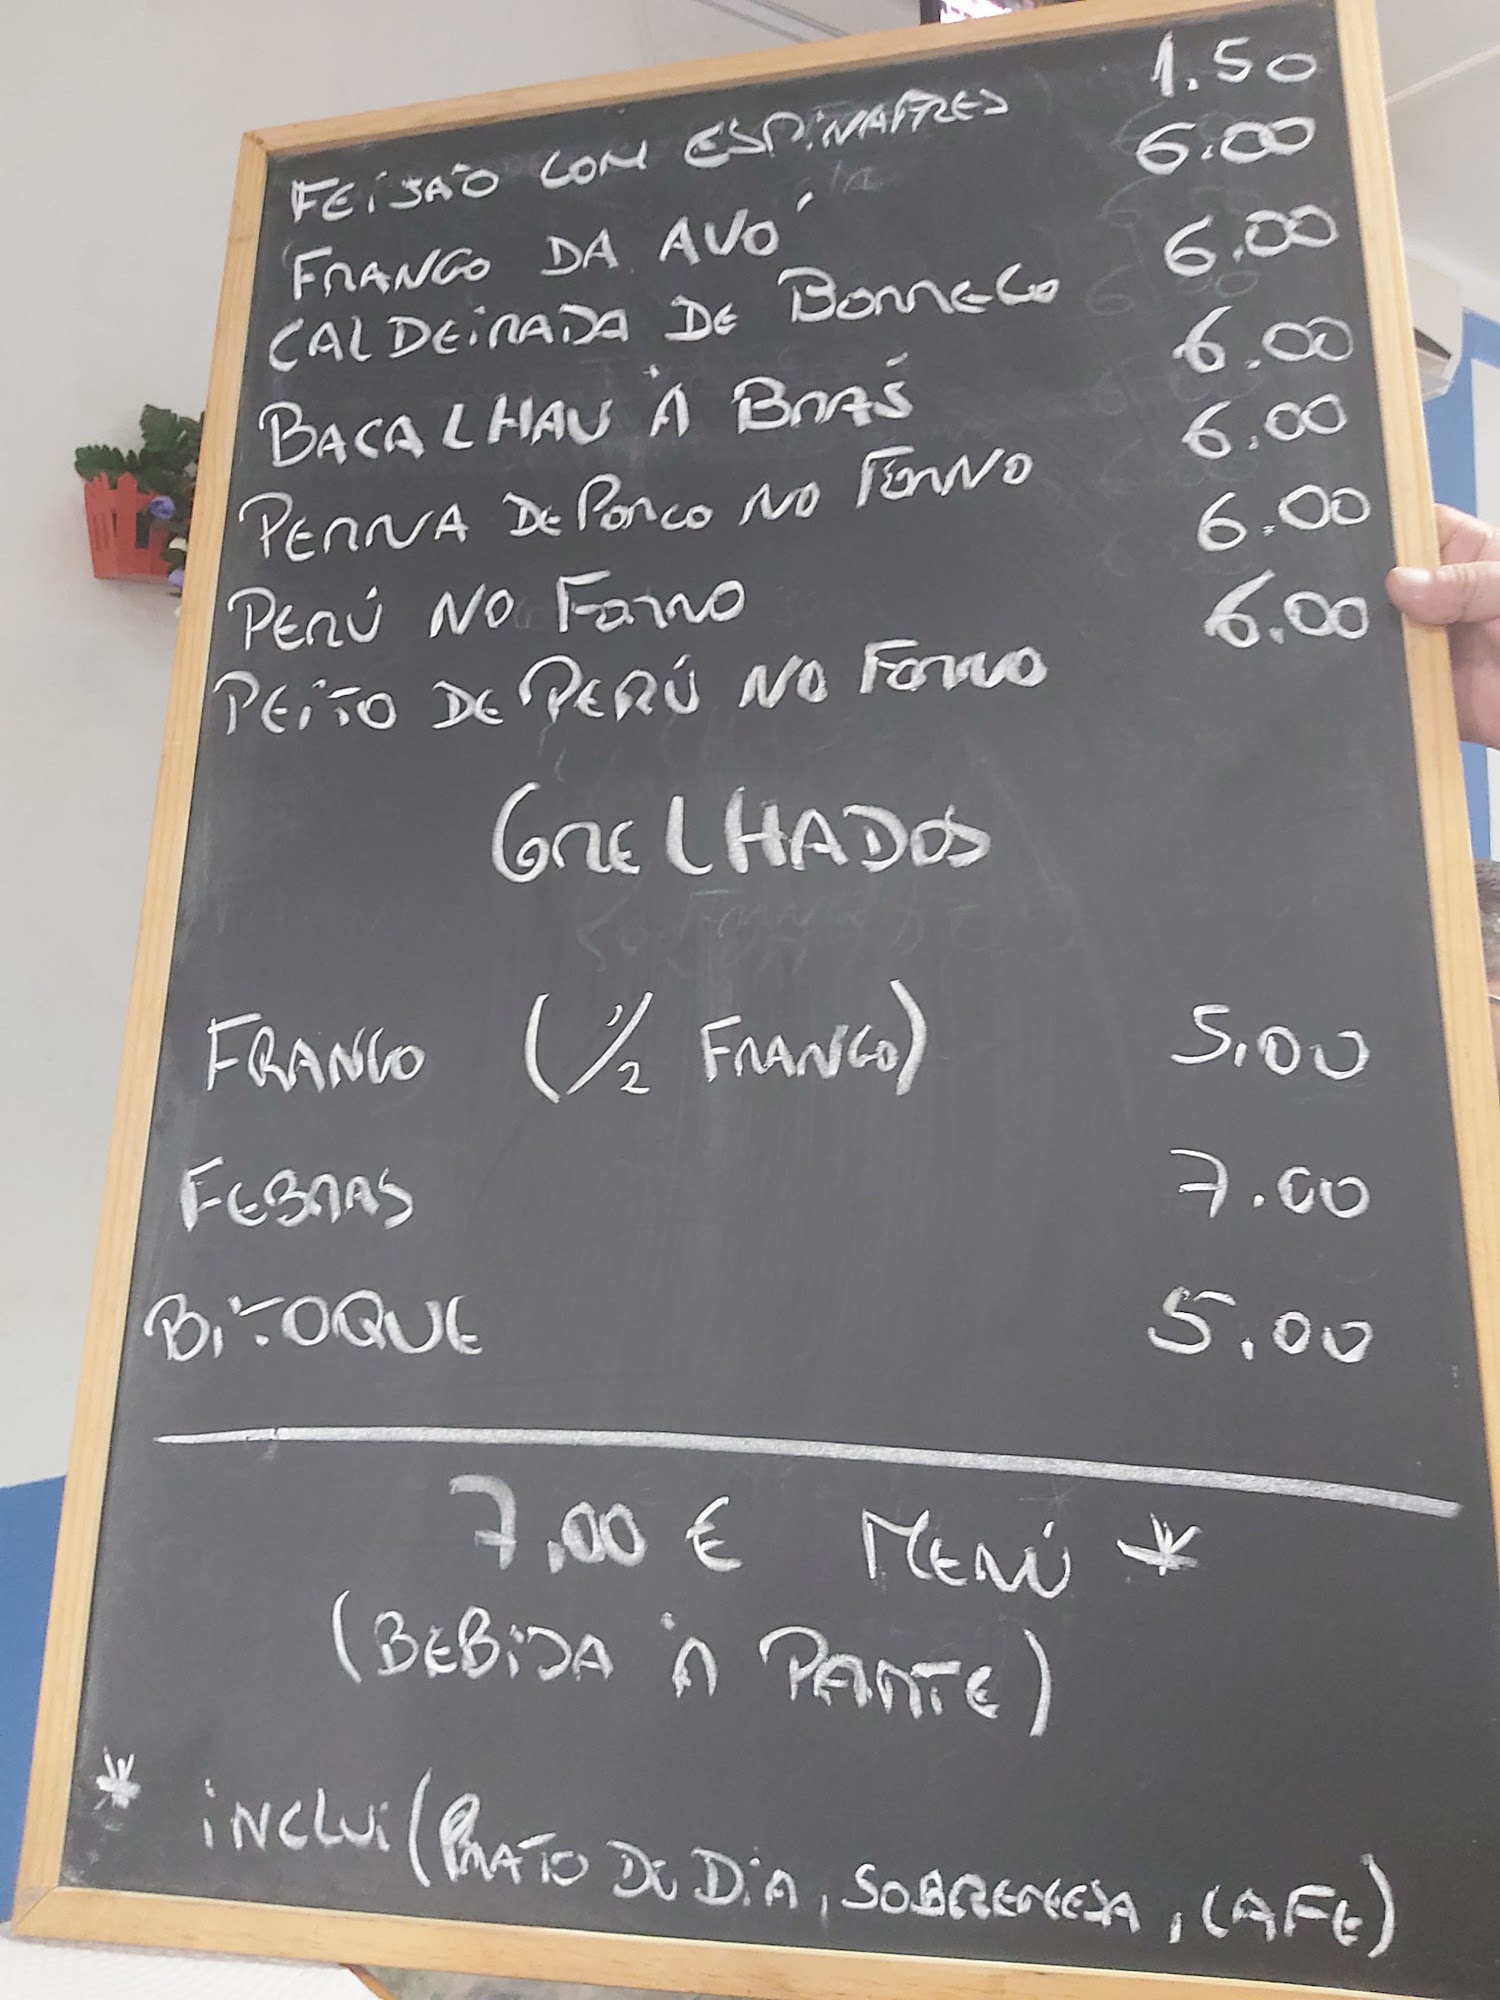 FEIJÃO COM ESPINAFRES 1.50
FRANGO DA AVÓ 6.00
CALDEIRADA DE BORREGO 6.00
BACALHAU À BRÁS 6.00
PERNA DE PORCO NO FORNO 6.00
PERÚ NO FORNO 6.00
PEITO DE PERÚ NO FORNO 6.00
GRELHADOS
FRANGO (1/2 FRANGO) 5,00
FEBRAS 7.00
BITOQUE 5,00
7,00 € MENÚ *
(BEBIDA À PARTE)
* INCLUI (PRATO DO DIA, SOBREMESA, CAFE)